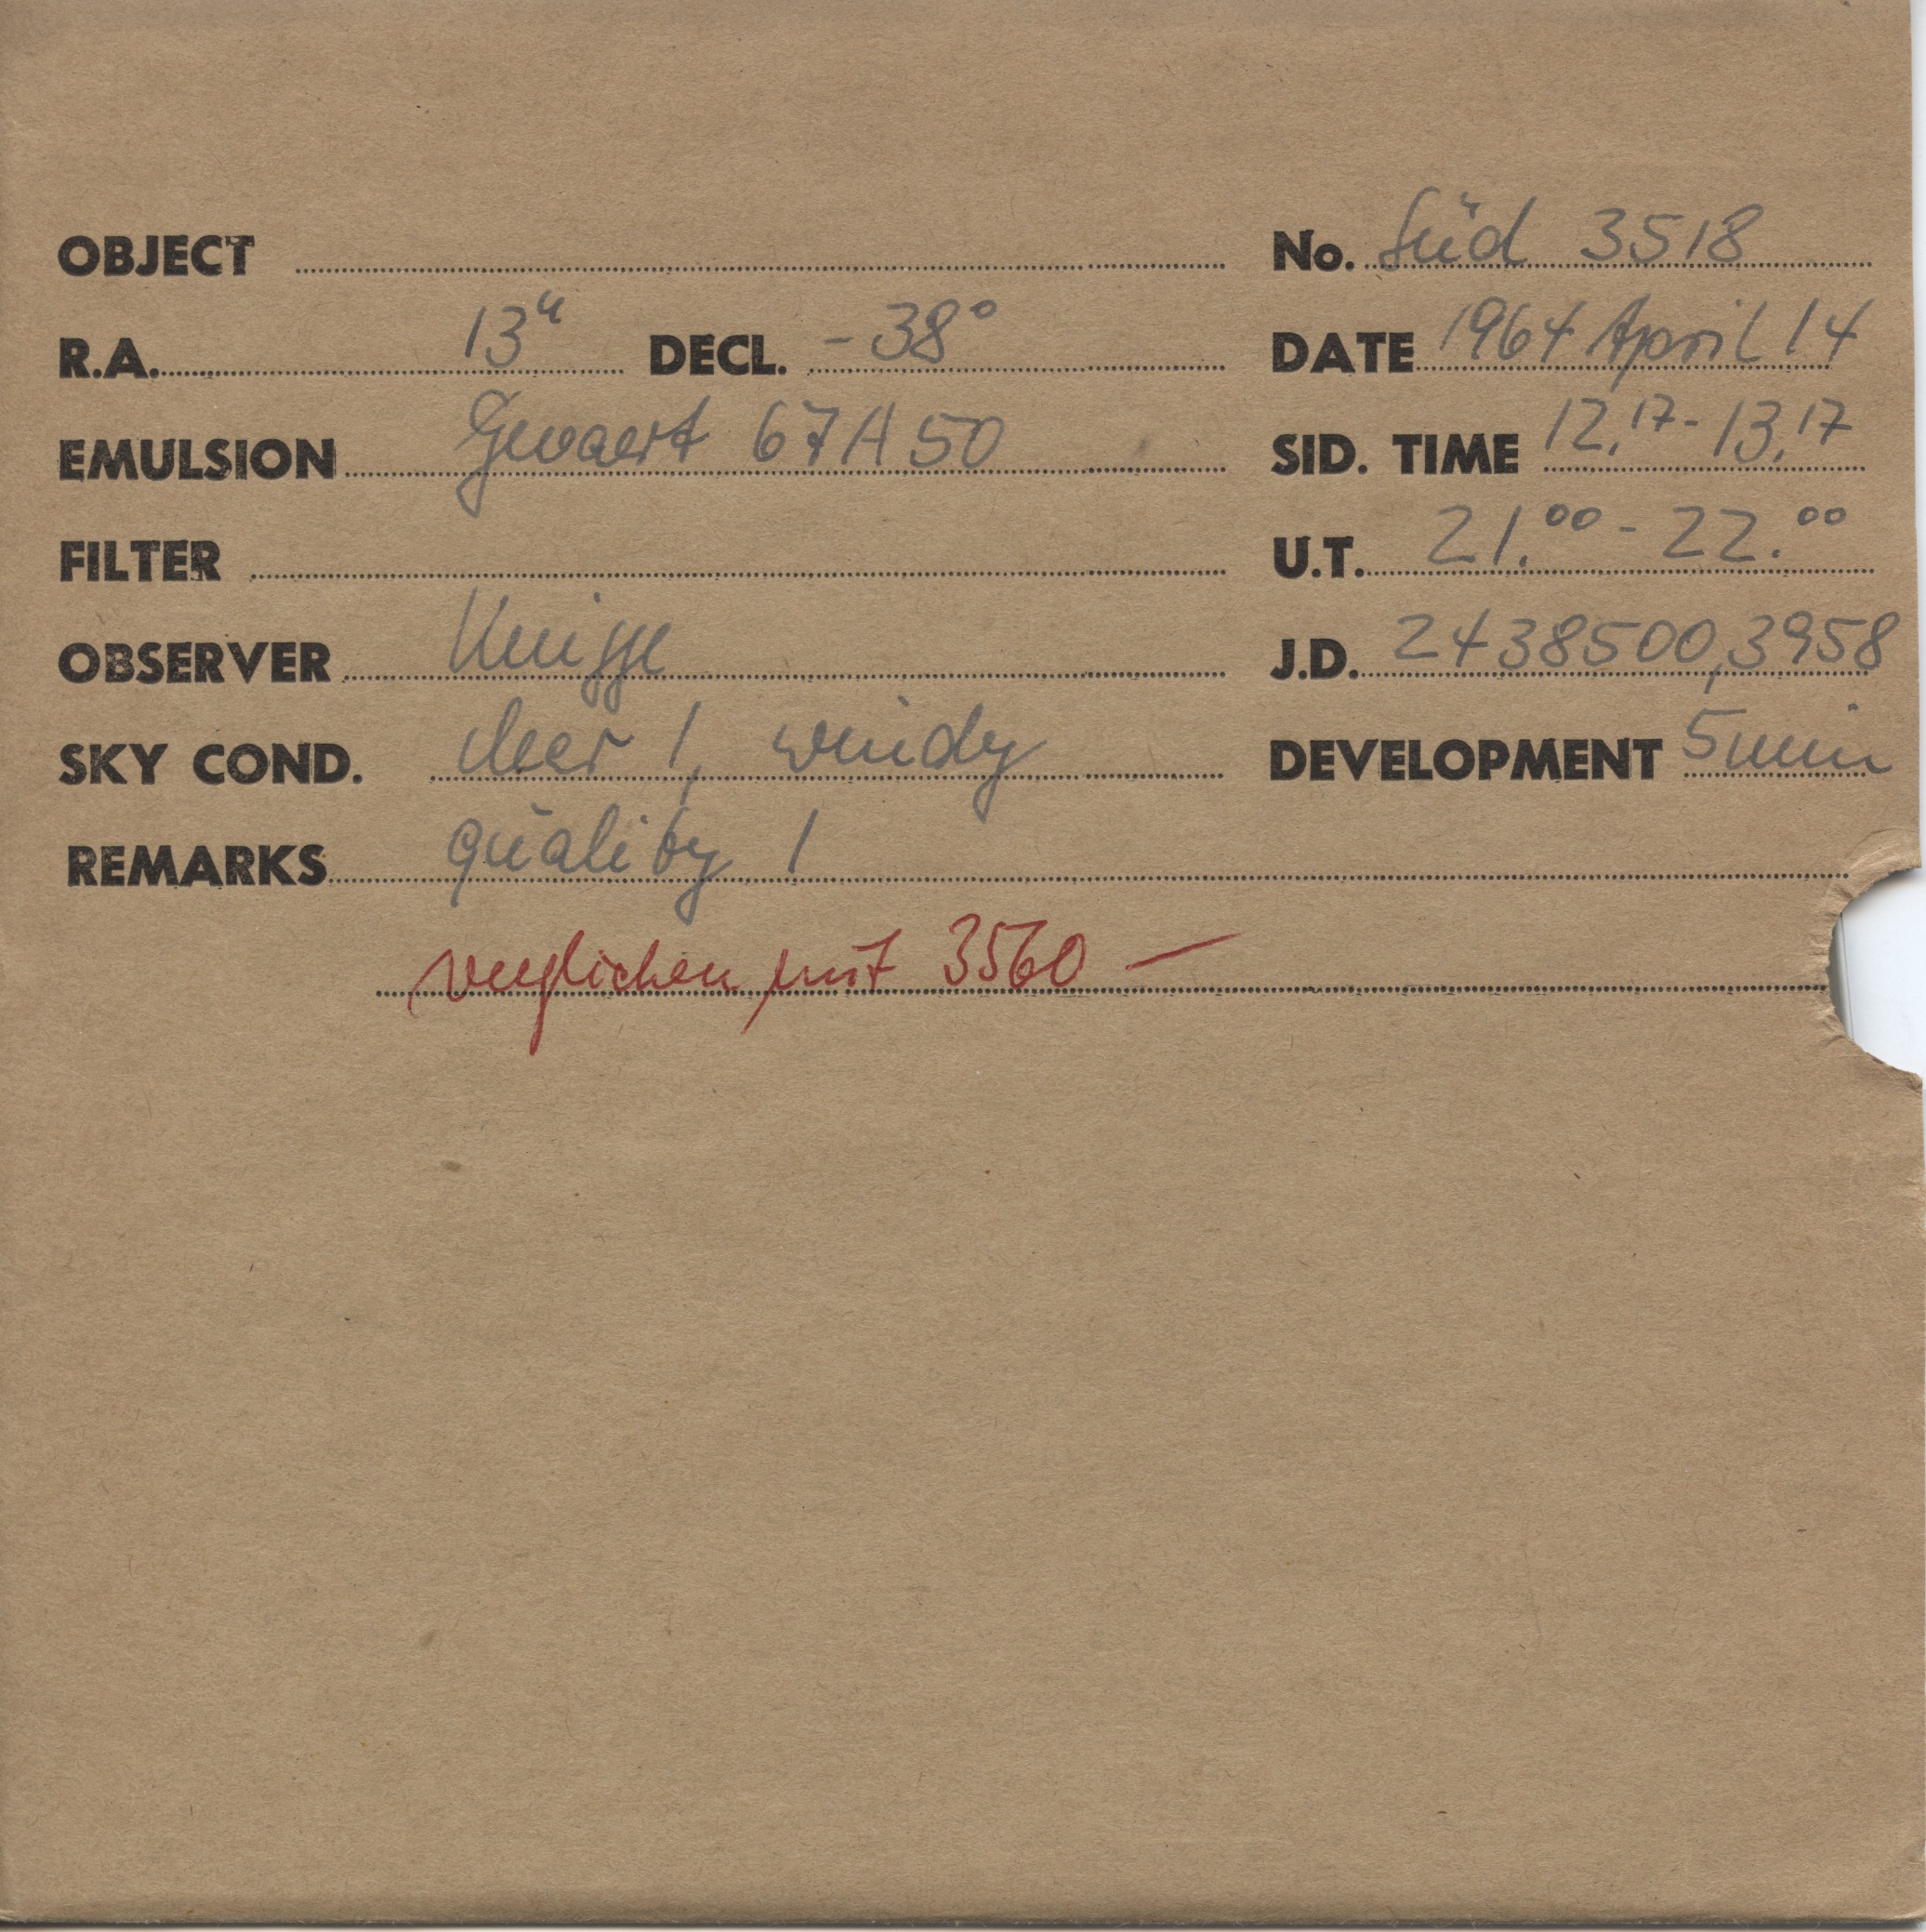 OBJECT No. Süd 3518
R.A. 13ʰ DECL. -38° DATE 1964 April 14
EMULSION Gevaert 67A50 SID. TIME 12.17 - 13.17
FILTER U.T. 21.00 - 22.00
OBSERVER Knigge J.D. 2438500,3958
SKY COND. cleer 1, windy DEVELOPMENT 5 min
REMARKS quality 1
verglichen mit 3560 —